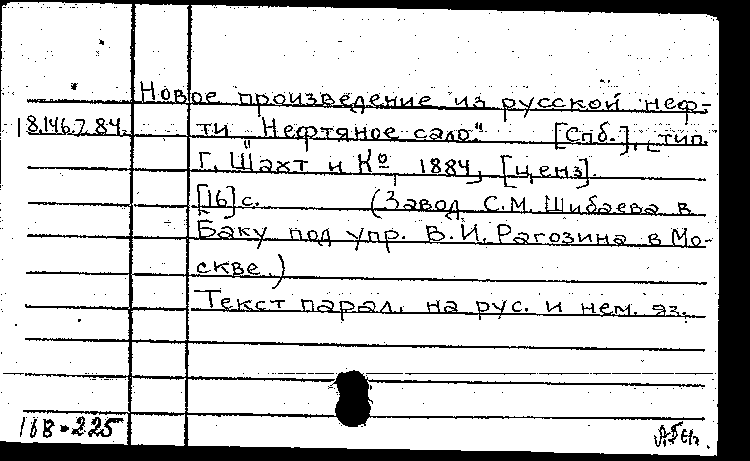 Новое произведение из русской неф-
18.146.7.84. ти „Нефтяное сало." [Спб.], тип.
Г. Шахт и К°, 1884, [ценз].
[16] с. (Завод С.М. Шибаева в
Баку под упр. В.И. Рагозина в Мо-
скве.)
Текст парал. на рус. и нем. яз.
16В-225